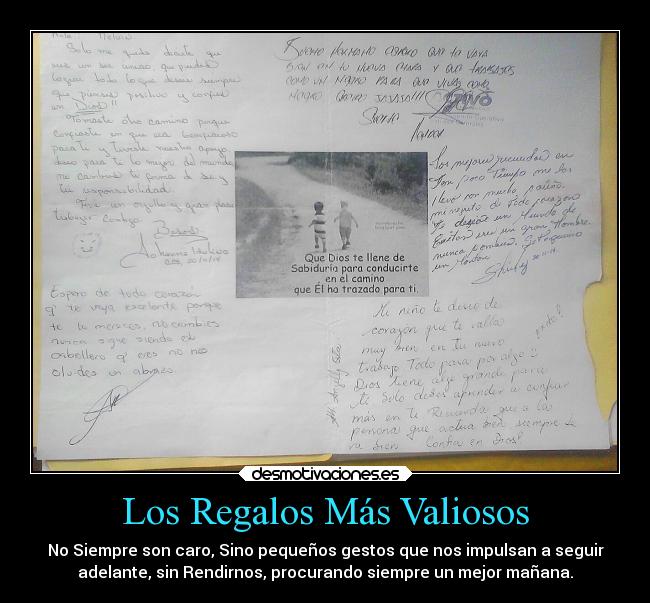 Solo me queda decirte que
eres un ser único, que puedes
lograr todo lo que desees siempre
que pienses positivo y confíes
en Dios!!
Tomaste otro camino porque
confiaste en que era
para ti y tuviste nuestro apoyo
deseo para ti lo mejor del mundo
no cambies tu forma de ser y
tu responsabilidad.
Fue un orgullo y gran placer
trabajar contigo.
Besos
Johanna
Espero de todo corazón
q' te vaya excelente porque
te lo mereces, no cambies
nunca sigue siendo el
caballero q' eres no nos
olvides un abrazo.
QUE TE VAYA
BIEN EN TU NUEVA ETAPA Y QUE TRABAJES
COMO UN NEGRO PARA QUE VIVAS COMO
NEGRO JAJAJA!!!
Los mejores recuerdos en
tan poco tiempo me los
llevo con mucho cariño.
de todo corazón
te deseo un Mundo de
Éxitos eres un gran Hombre
nunca cambies.
un Montón
Shirley
Que Dios te llene de
Sabiduría para conducirte
en el camino
que Él ha trazado para ti.
Mi niño te deseo de
corazón que te valla
muy bien en tu nuevo
trabajo Todo pasa por algo
Dios tiene algo grande para
ti Solo debes aprender a confiar
más en ti Recuerda que a la
persona que actua bien siempre le
va bien Confia en Dios!
desmotivaciones.es
Los Regalos Más Valiosos
No Siempre son caro, Sino pequeños gestos que nos impulsan a seguir
adelante, sin Rendirnos, procurando siempre un mejor mañana.